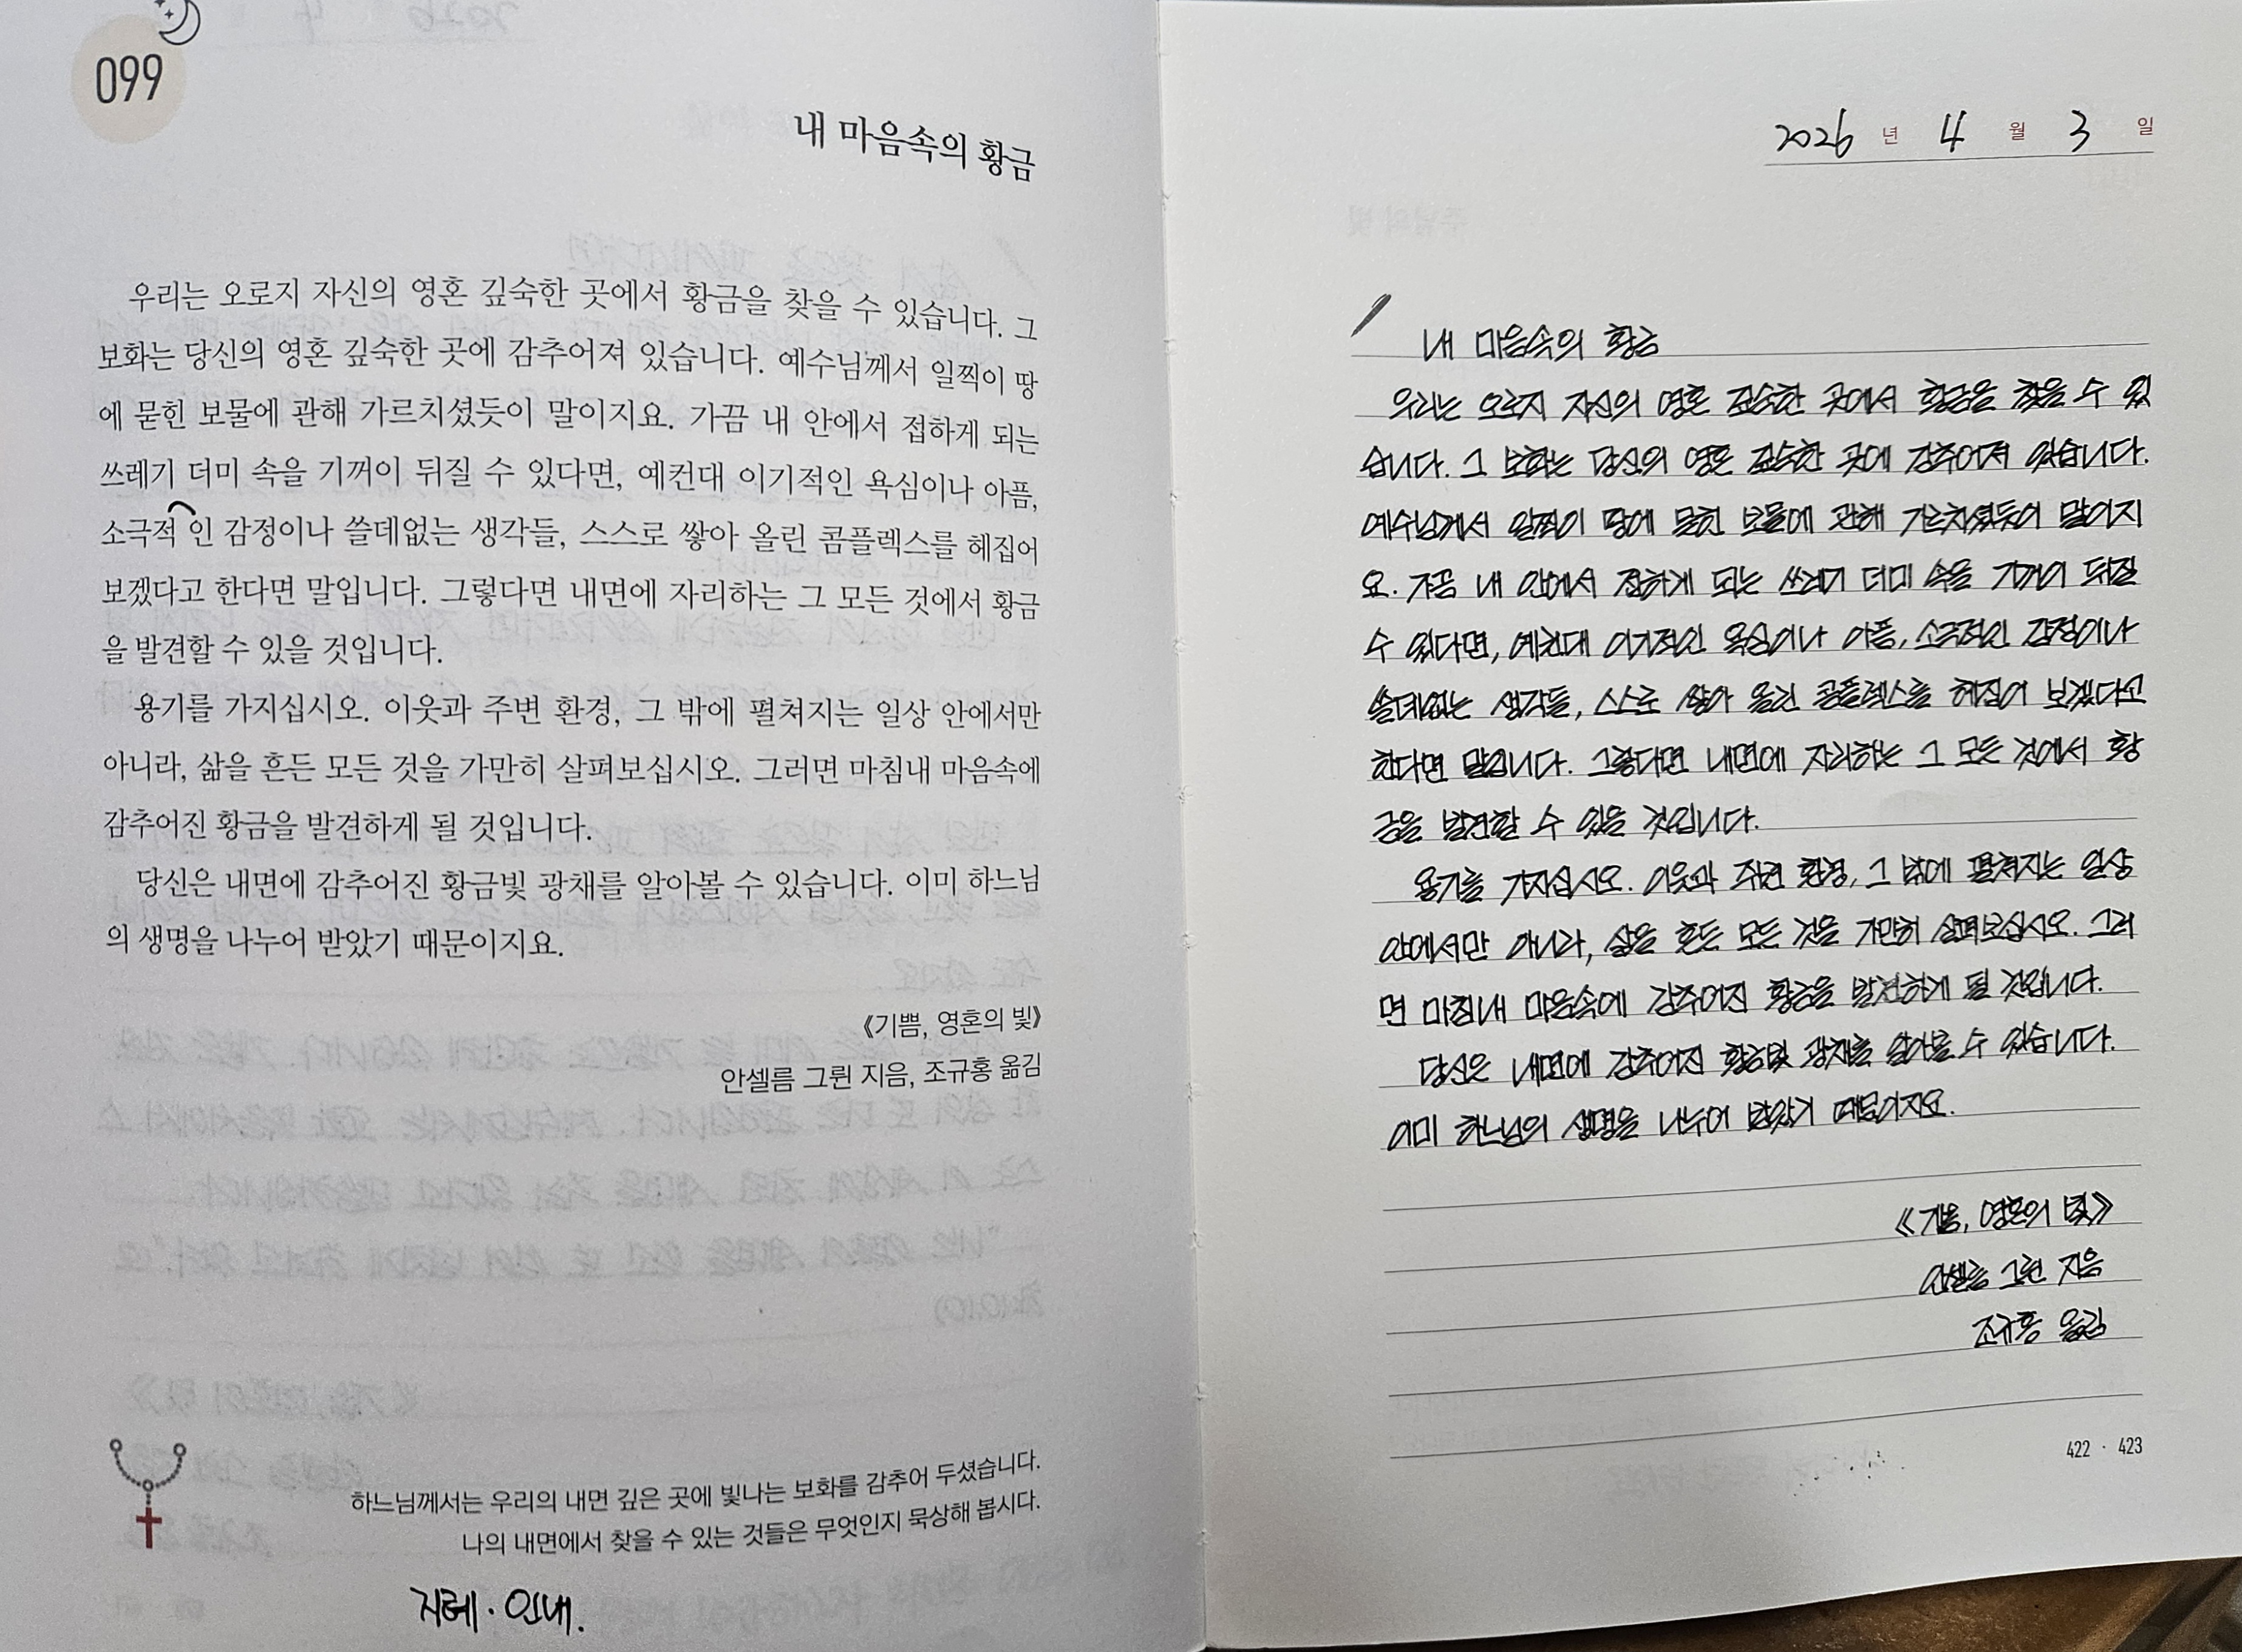 099
내 마음속의 황금
우리는 오로지 자신의 영혼 깊숙한 곳에서 황금을 찾을 수 있습니다. 그
보화는 당신의 영혼 깊숙한 곳에 감추어져 있습니다. 예수님께서 일찍이 땅
에 묻힌 보물에 관해 가르치셨듯이 말이지요. 가끔 내 안에서 접하게 되는
쓰레기 더미 속을 기꺼이 뒤질 수 있다면, 예컨대 이기적인 욕심이나 아픔,
소극적 인 감정이나 쓸데없는 생각들, 스스로 쌓아 올린 콤플렉스를 헤집어
보겠다고 한다면 말입니다. 그렇다면 내면에 자리하는 그 모든 것에서 황금
을 발견할 수 있을 것입니다.
용기를 가지십시오. 이웃과 주변 환경, 그 밖에 펼쳐지는 일상 안에서만
아니라, 삶을 흔든 모든 것을 가만히 살펴보십시오. 그러면 마침내 마음속에
감추어진 황금을 발견하게 될 것입니다.
당신은 내면에 감추어진 황금빛 광채를 알아볼 수 있습니다. 이미 하느님
의 생명을 나누어 받았기 때문이지요.
《기쁨, 영혼의 빛》
안셀름 그륀 지음, 조규홍 옮김
하느님께서는 우리의 내면 깊은 곳에 빛나는 보화를 감추어 두셨습니다.
나의 내면에서 찾을 수 있는 것들은 무엇인지 묵상해 봅시다.
지혜 · 인내.
2026 년 4 월 3 일
내 마음속의 황금
우리는 오로지 자신의 영혼 깊숙한 곳에서 황금을 찾을 수 있
습니다. 그 보화는 당신의 영혼 깊숙한 곳에 감추어져 있습니다.
예수님께서 일찍이 땅에 묻힌 보물에 관해 가르치셨듯이 말이지
요. 가끔 내 안에서 접하게 되는 쓰레기 더미 속을 기꺼이 뒤질
수 있다면, 예컨대 이기적인 욕심이나 아픔, 소극적인 감정이나
쓸데없는 생각들, 스스로 쌓아 올린 콤플렉스를 헤집어 보겠다고
한다면 말입니다. 그렇다면 내면에 자리하는 그 모든 것에서 황
금을 발견할 수 있을 것입니다.
용기를 가지십시오. 이웃과 주변 환경, 그 밖에 펼쳐지는 일상
안에서만 아니라, 삶을 흔든 모든 것을 가만히 살펴보십시오. 그러
면 마침내 마음속에 감추어진 황금을 발견하게 될 것입니다.
당신은 내면에 감추어진 황금빛 광채를 알아볼 수 있습니다.
이미 하느님의 생명을 나누어 받았기 때문이지요.
《기쁨, 영혼의 빛》
안셀름 그륀 지음
조규홍 옮김
422 · 423